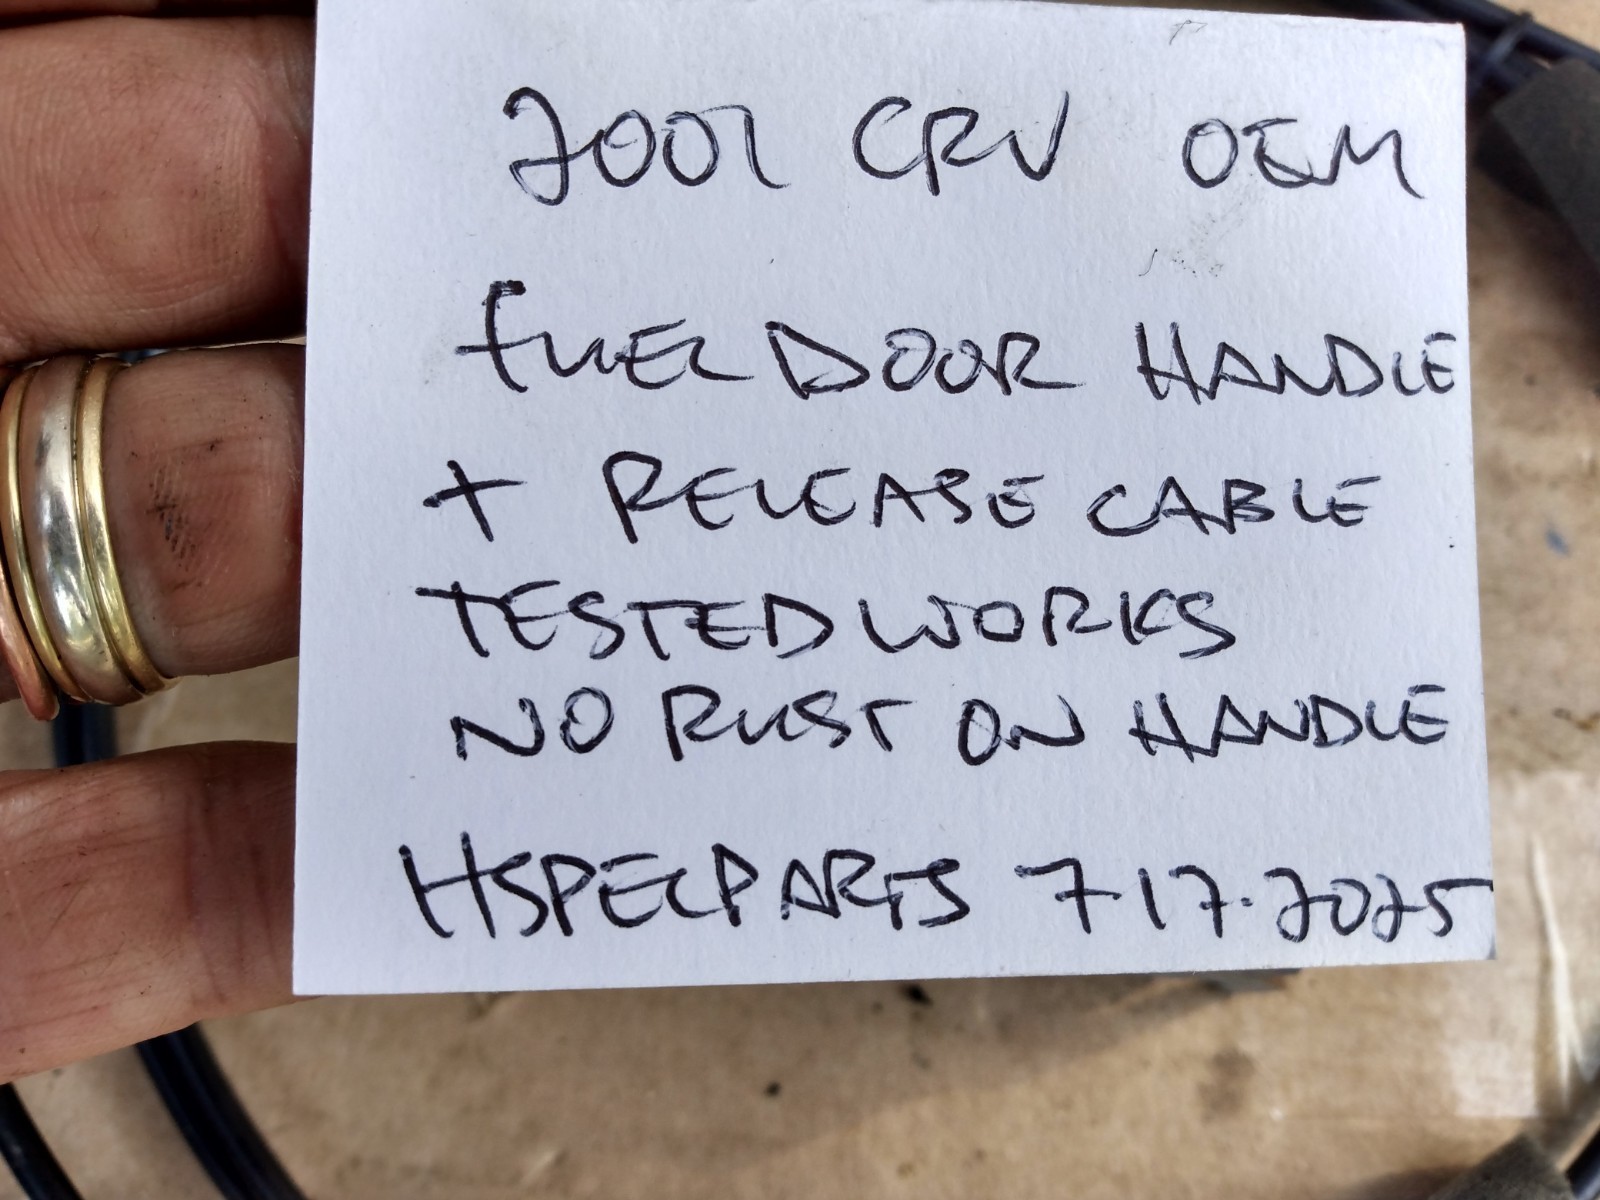 2001 CRV OEM
FUEL DOOR HANDLE
+ RELEASE CABLE
TESTED WORKS
NO RUST ON HANDLE
HSPECPARTS 7.17.2025